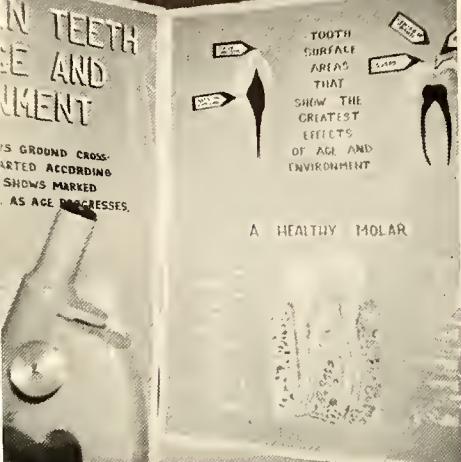 N TEETH
E AND
NMENT
S GROUND CROSS-
ARTED ACCORDING
SHOWS MARKED
AS AGE PROGRESSES.
TOOTH
SURFACE
AREAS
THAT
SHOW THE
GREATEST
EFFECTS
OF AGE AND
ENVIRONMENT
A HEALTHY MOLAR